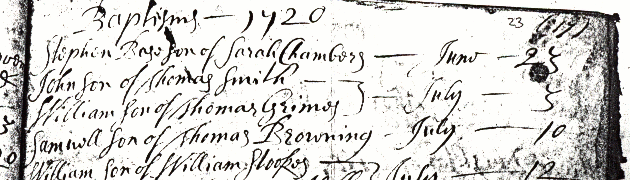 Baptisms — 1720 23 (17)
Stephen Base son of Sarah Chambers — June — 23
John son of Thomas Smith —
William son of Thomas Grimes } July — 3
Samuell son of Thomas Browning — July — 10
William son of William Stookes — July — 12